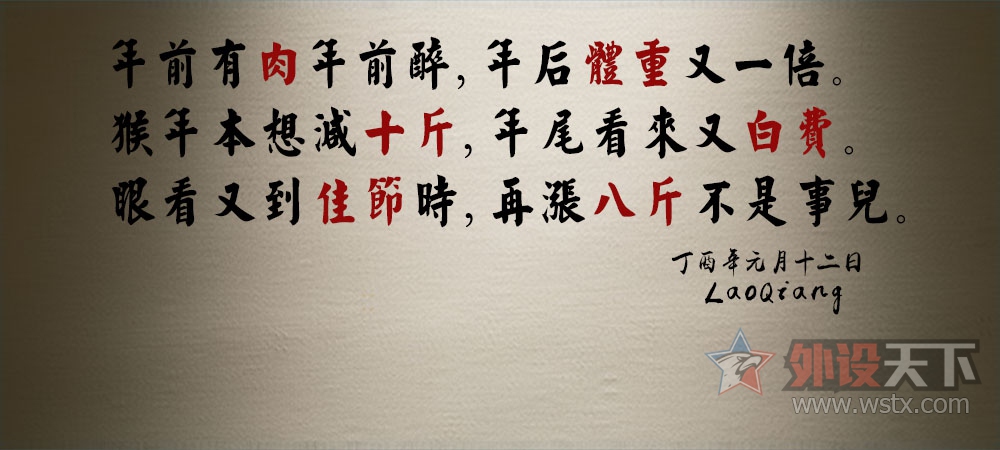 年前有肉年前醉,年后體重又一倍。
猴年本想減十斤,年尾看來又白費。
眼看又到佳節時,再漲八斤不是事兒。
丁酉年元月十二日
LaoQiang
外设天下
www.wstx.com